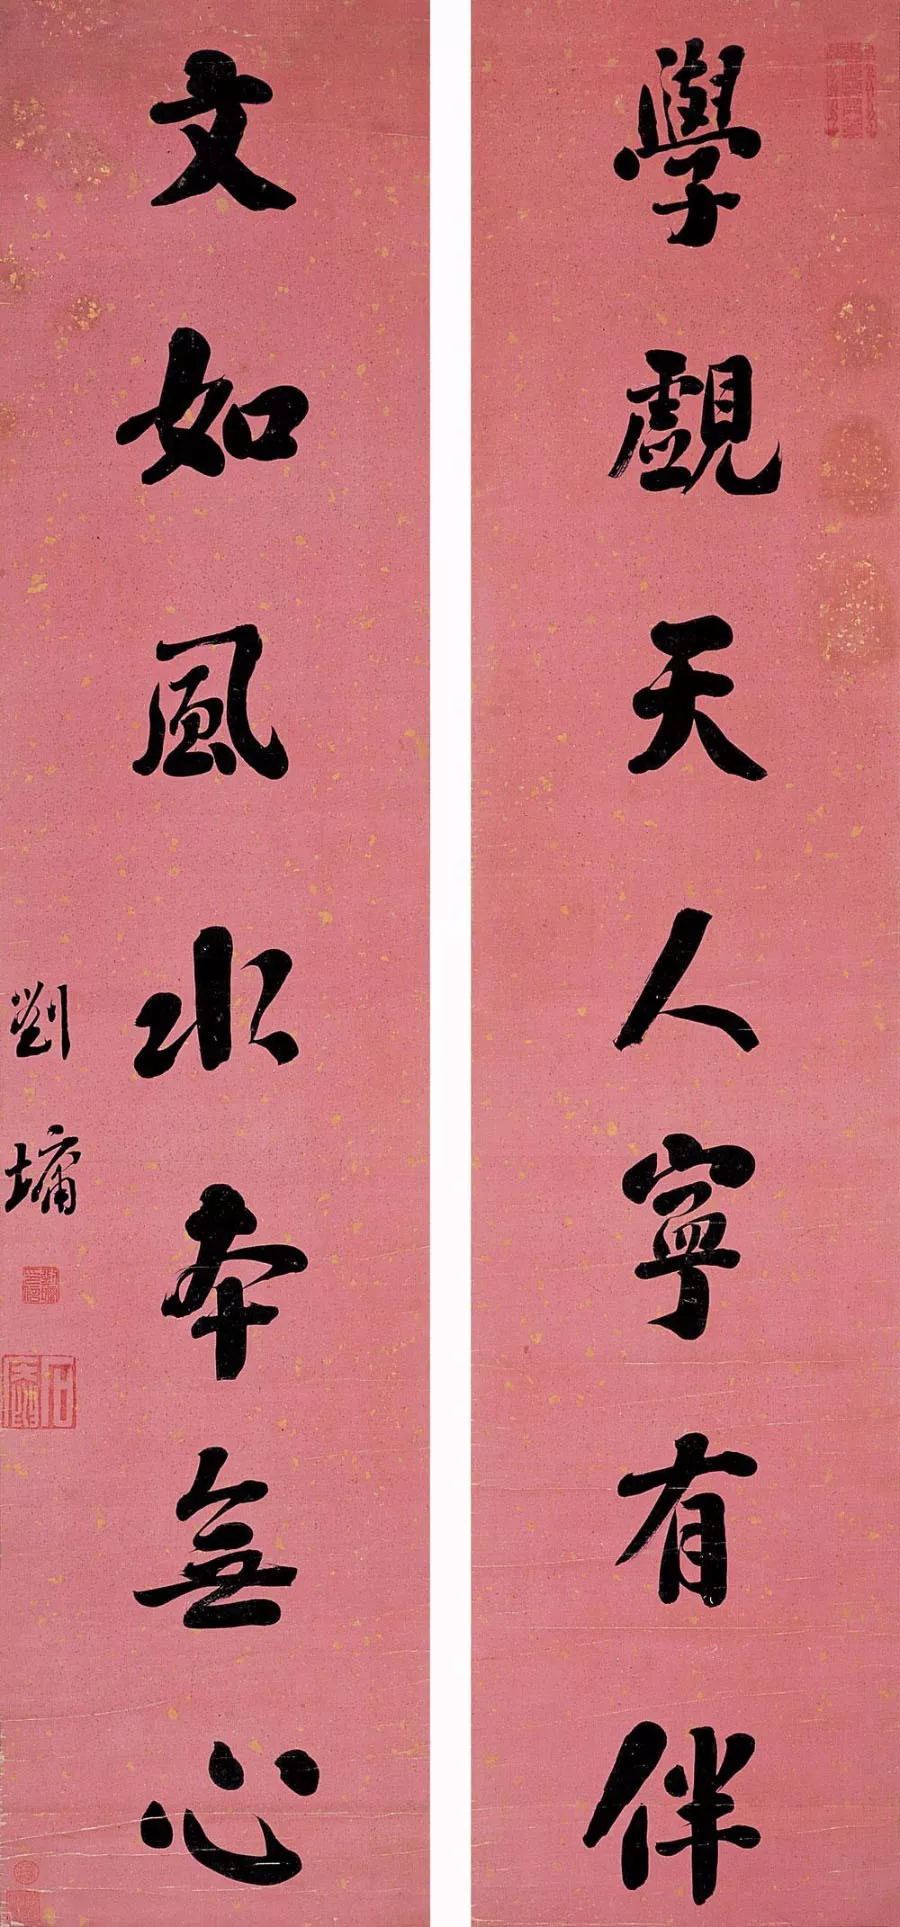 學覷天人寧有伴
文如風水本無心
劉墉